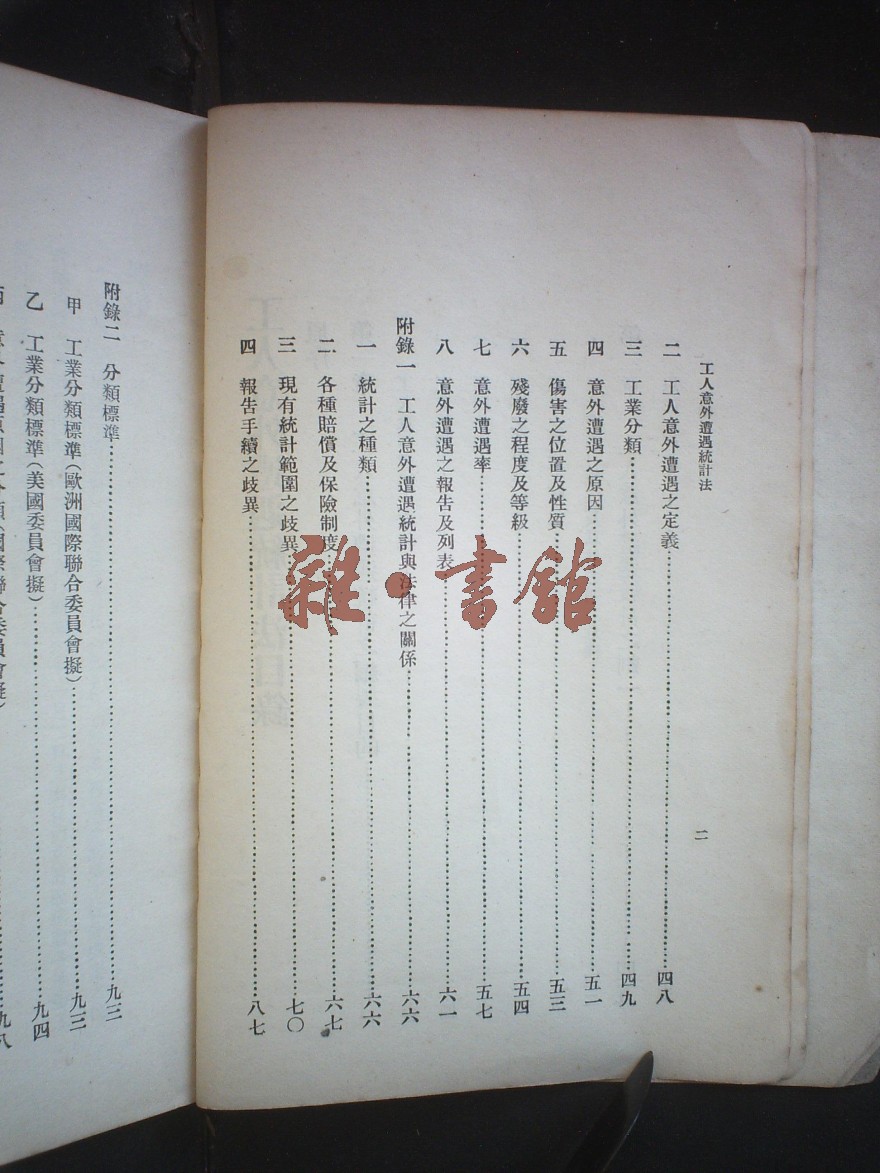 工人意外遭遇統計法
二
二 工人意外遭遇之定義……四八
三 工業分類……四九
四 意外遭遇之原因……五一
五 傷害之位置及性質……五三
六 殘廢之程度及等級……五四
七 意外遭遇率……五七
八 意外遭遇之報告及列表……六一
附錄一 工人意外遭遇統計與法律之關係……六六
一 統計之種類……六六
二 各種賠償及保險制度……六七
三 現有統計範圍之歧異……七〇
四 報告手續之歧異……八七
附錄二 分類標準……九三
甲 工業分類標準(歐洲國際聯合委員會擬)……九三
乙 工業分類標準(美國委員會擬)……九四
雜·書館